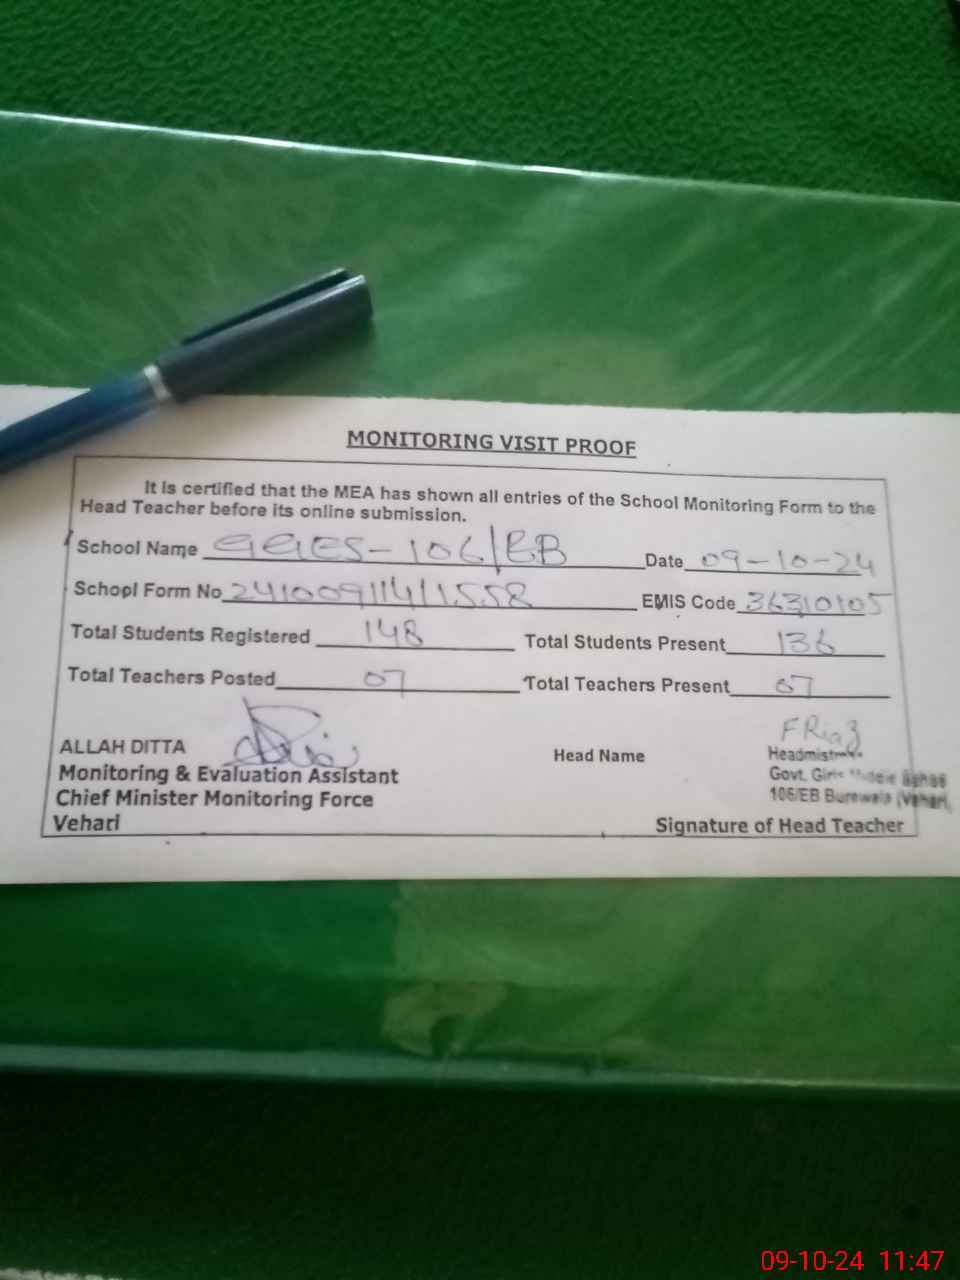 MONITORING VISIT PROOF
It is certified that the MEA has shown all entries of the School Monitoring Form to the
Head Teacher before its online submission.
School Name GGES-106/EB Date 09-10-24
School Form No EMIS Code 36310105
Total Students Registered 148 Total Students Present 136
Total Teachers Posted 07 Total Teachers Present 07
ALLAH DITTA Head Name F Riaz
Monitoring & Evaluation Assistant Headmistress
Chief Minister Monitoring Force Govt. Girls
Vehari 106/EB Burewala (Vehari)
Signature of Head Teacher
09-10-24 11:47